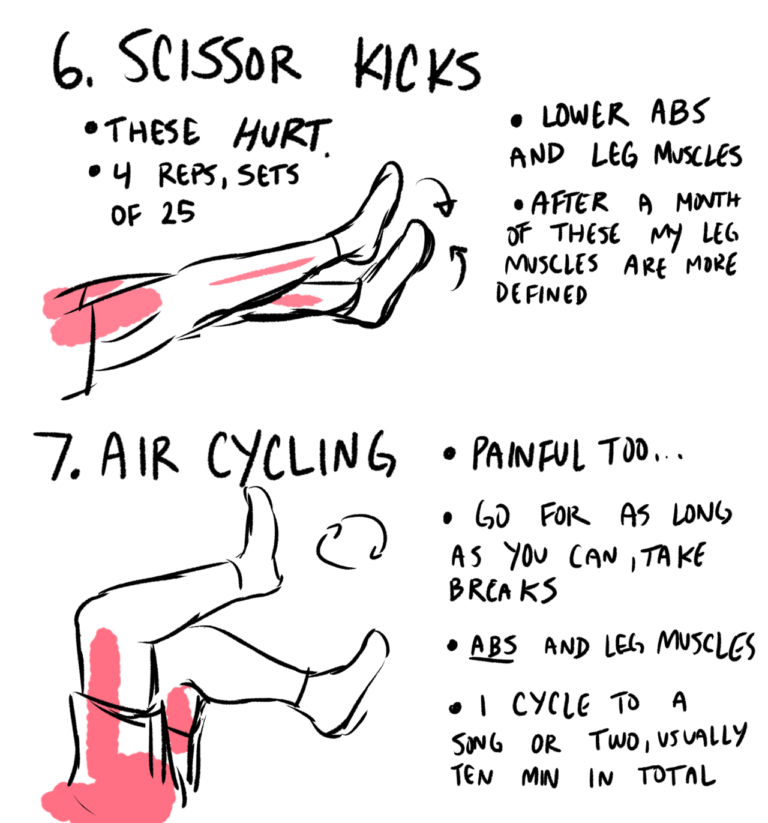 6. SCISSOR KICKS
• THESE HURT.
• 4 REPS, SETS
OF 25
• LOWER ABS
AND LEG MUSCLES
• AFTER A MONTH
OF THESE MY LEG
MUSCLES ARE MORE
DEFINED
7. AIR CYCLING
• PAINFUL TOO...
• GO FOR AS LONG
AS YOU CAN, TAKE
BREAKS
• ABS AND LEG MUSCLES
• I CYCLE TO A
SONG OR TWO, USUALLY
TEN MIN IN TOTAL